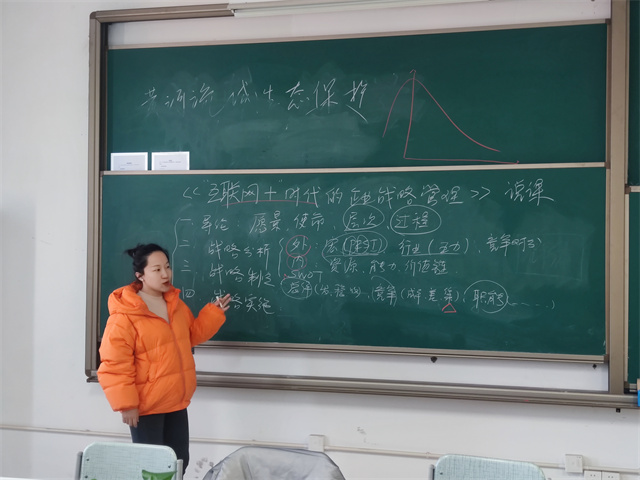 黄河流域生态保护
《"互联网+"时代的企业战略管理》 说课
一 导论 愿景、使命、层次、过程
二 战略分析 外:宏(PEST) 行业(五力)、竞争对手
内 资源、能力、价值链
三 战略制定 SWOT
总体(发、稳、收)、竞争(成、差、集)、职能……)
四 战略实施